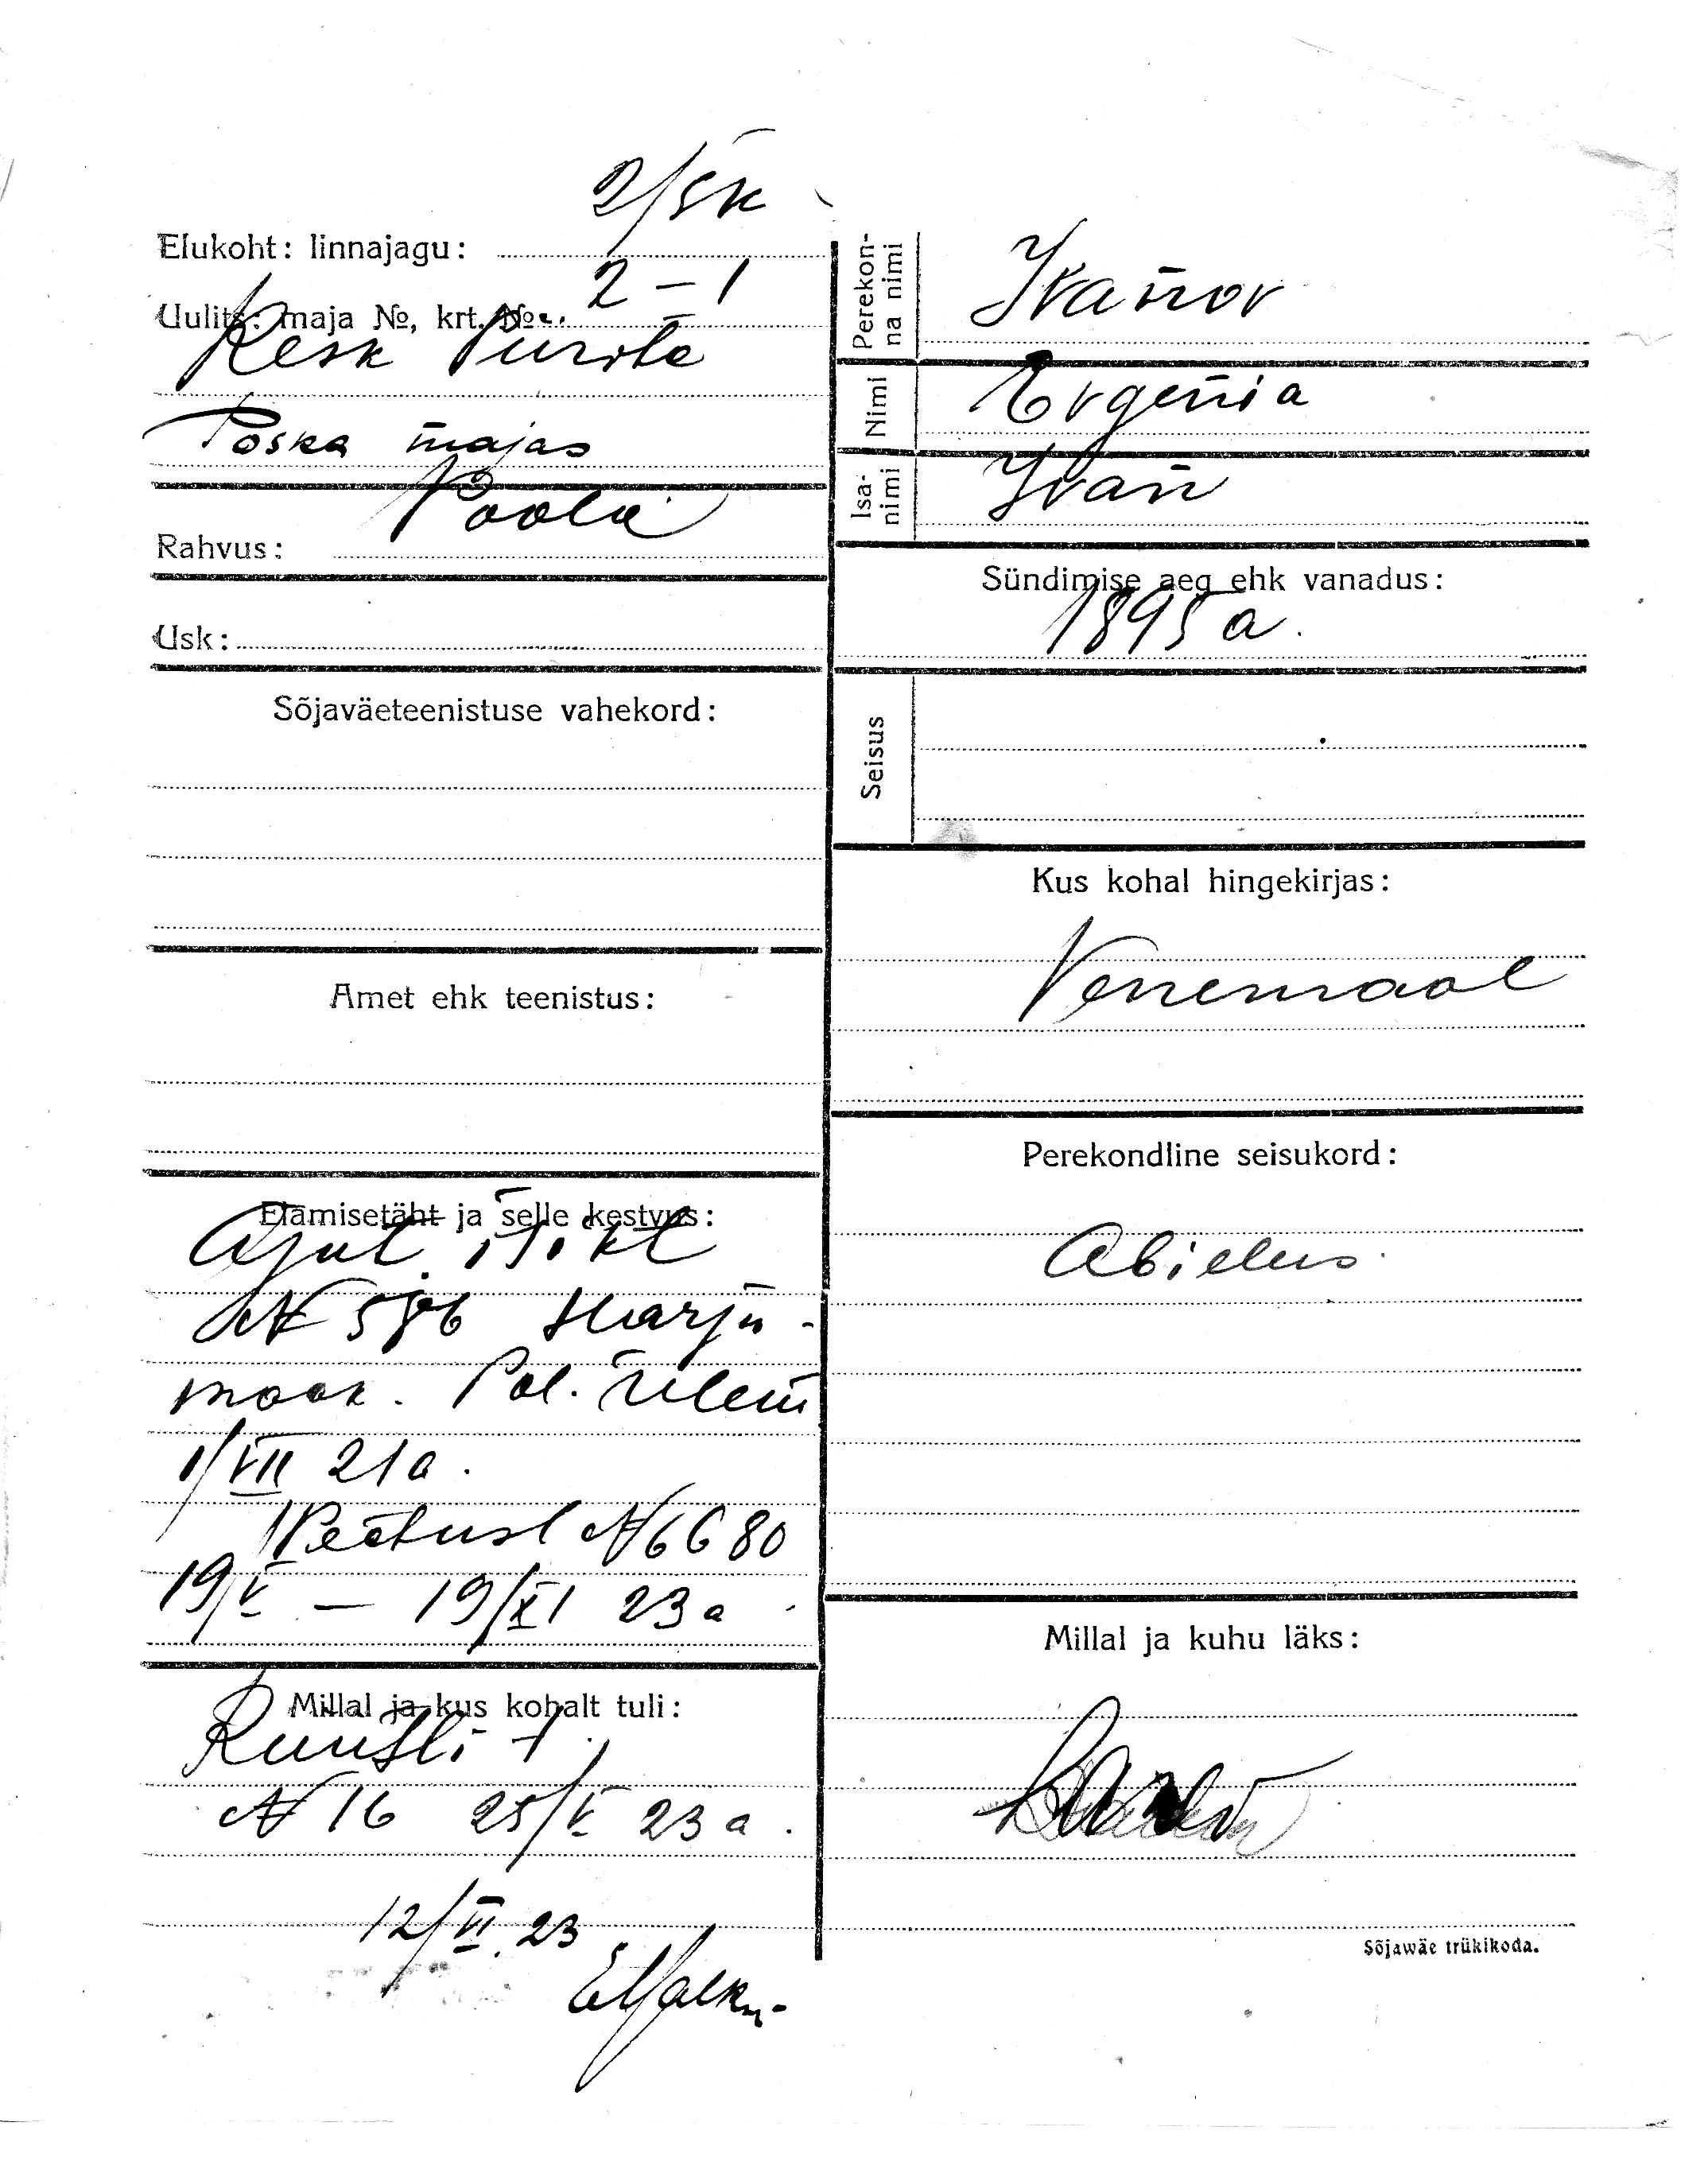 2/5k
Elukoht: linnajagu:
2 – 1
Uulits: maja №, krt. №
Kesk
Poska majas
Poola
Rahvus:
Usk:
Sõjaväeteenistuse vahekord:
Amet ehk teenistus:
Elamisetäht ja selle kestvus:
Ajut. isikt
N 586 Harju-
maak. Pol. ülem
1/VII 21 a.
Peatusl N 6680
19/V – 19/XI 23 a
Millal ja kus kohalt tuli:
Kuninga t.
N 16 25/V 23 a.
12/VI 23
Perekonna nimi
Ivanov
Nimi
Evgenia
Isanimi
Ivan
Sündimise aeg ehk vanadus:
1895 a.
Seisus
Kus kohal hingekirjas:
Venemaal
Perekondline seisukord:
Abielus
Millal ja kuhu läks:
Sõjawäe trükikoda.